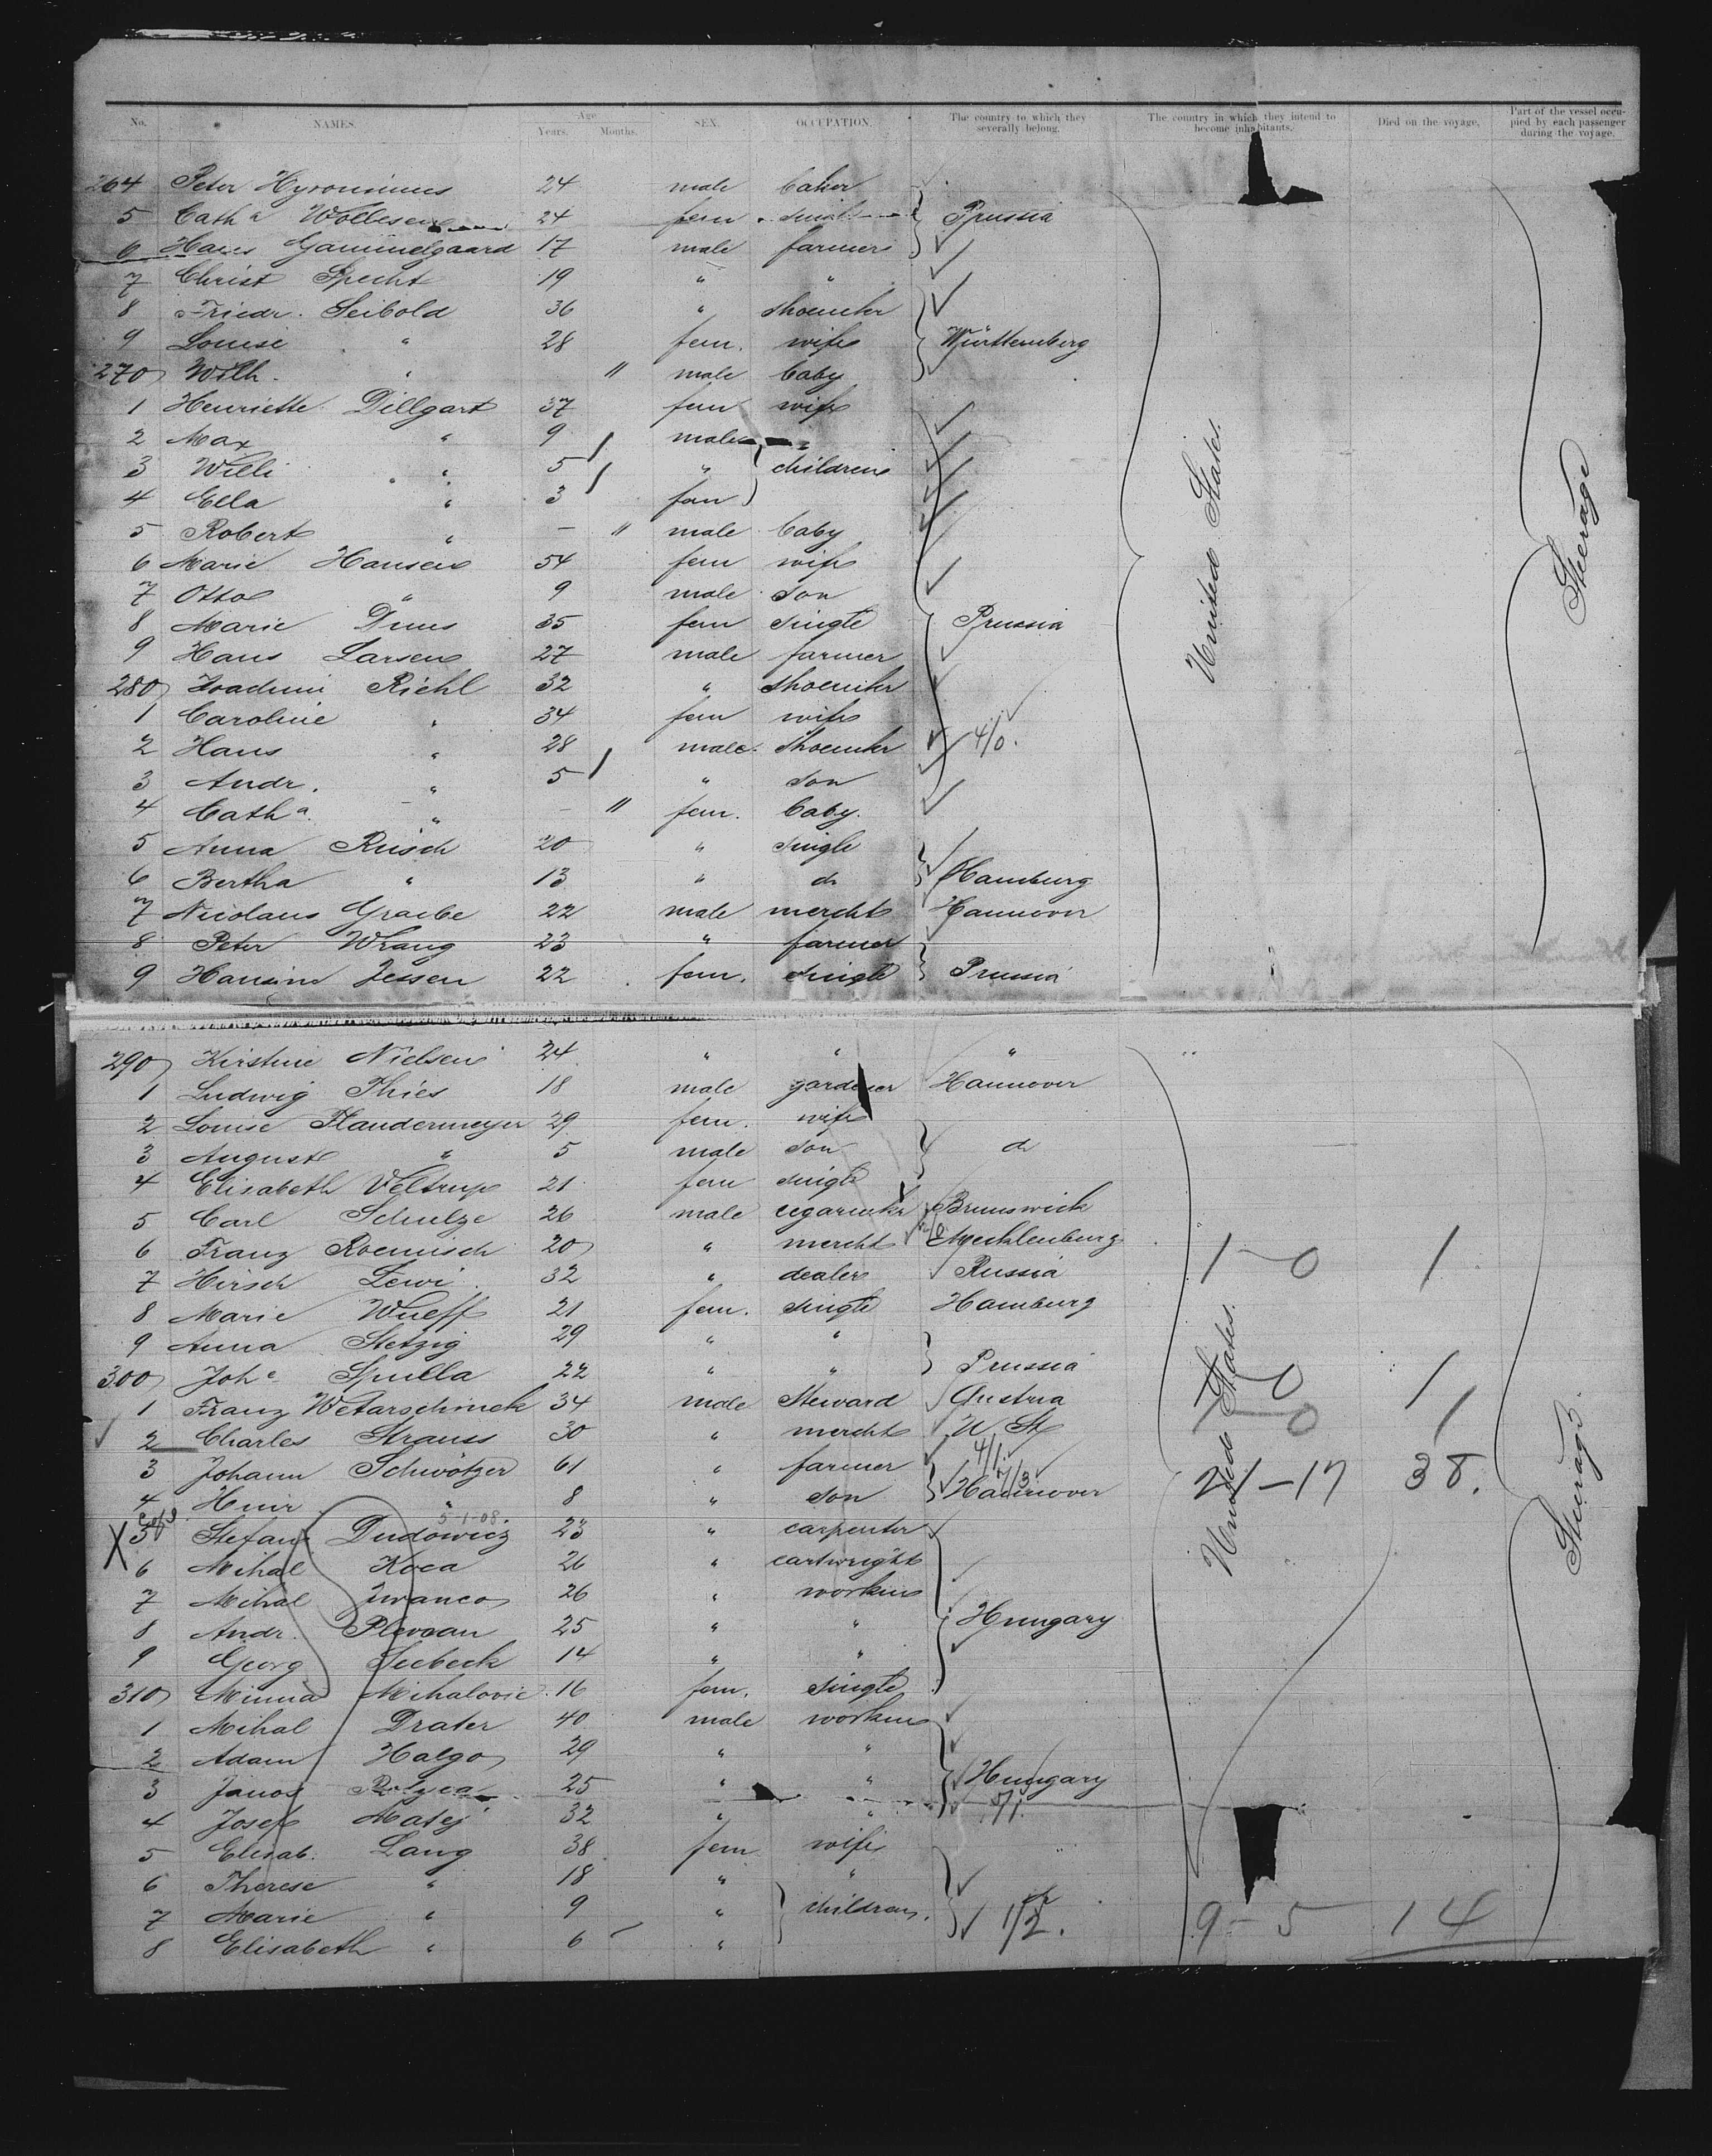 No. NAMES. Age Years. Months. SEX. OCCUPATION. The country to which they severally belong. The country in which they intend to become inhabitants. Died on the voyage. Part of the vessel occupied by each passenger during the voyage.
264 Peter Hyronimus 24 male baker
5 Cath a Wollesen 24 fem. single Prussia
6 Hans Gammelgaard 17 male farmer
7 Christ Specht 19 " "
8 Friedr. Seibold 36 " shoemkr
9 Louise " 28 fem. wife Württemberg
270 Wilh. " 11 male baby
1 Henriette Dillgart 37 fem wife
2 Max " 9 male
3 Willi " 5 " children
4 Ella " 3 fem
5 Robert " — 11 male baby
6 Marie Hansen 54 fem wife
7 Otto " 9 male son
8 Marie Duus 35 fem single Prussia
9 Hans Larsen 27 male farmer
280 Joachim Riehl 32 " shoemkr
1 Caroline " 34 fem wife
2 Hans " 28 male shoemkr 4/0.
3 Andr. " 5 " son
4 Cath a. " — 11 fem. baby.
5 Anna Rusch 20 " single
6 Bertha " 13 " do Hamburg
7 Nicolaus Graebe 22 male mercht Hannover
8 Peter Wrang 23 " farmer
9 Hansine Jessen 22 fem. single Prussia
United States.
Steerage
290 Kirstine Nielsen 24 " " "
1 Ludwig Thies 18 male gardener Hannover
2 Louise Flaudermeyer 29 fem. wife
3 August " 5 male son do
4 Elisabeth Veltrup 21 fem single
5 Carl Schulze 26 male cigarmkr Brunswick
6 Franz Roemisch 20 " mercht Mecklenburg
7 Hirsch Lewi 32 " dealer Russia 1 - 0 1
8 Marie Wulff 21 fem. single Hamburg
9 Anna Stetzig 29 " "
300 Joh e Spulla 22 " " Prussia 1 - 0 1
1 Franz Wetarschinek 34 male Steward Austria 1 - 0 1
2 Charles Strauss 30 " mercht U. St
3 Johann Schwötzer 61 " farmer 4/1. 21 - 17 38.
4 Heinr " 8 " son Hannover
5-1-08.
X 5 Stefan Dudowicz 23 " carpenter
6 Mihal Koca 26 " cartwright
7 Mihal Iwanco 26 " workm
8 Andr. Plevcan 25 " " Hungary
9 Georg Seebeck 14 " "
310 Minna Mihalovic 16 fem. single
1 Mihal Drater 40 male workm
2 Adam Halgo 29 " "
3 Janos 25 " " Hungary
4 Josef Matej 32 " "
5 Elisab. Lang 38 fem wife
6 Therese " 18 " "
7 Marie " 9 " children. 1/2. 9 - 5 14
8 Elisabeth " 6 "
United States.
Steerage.